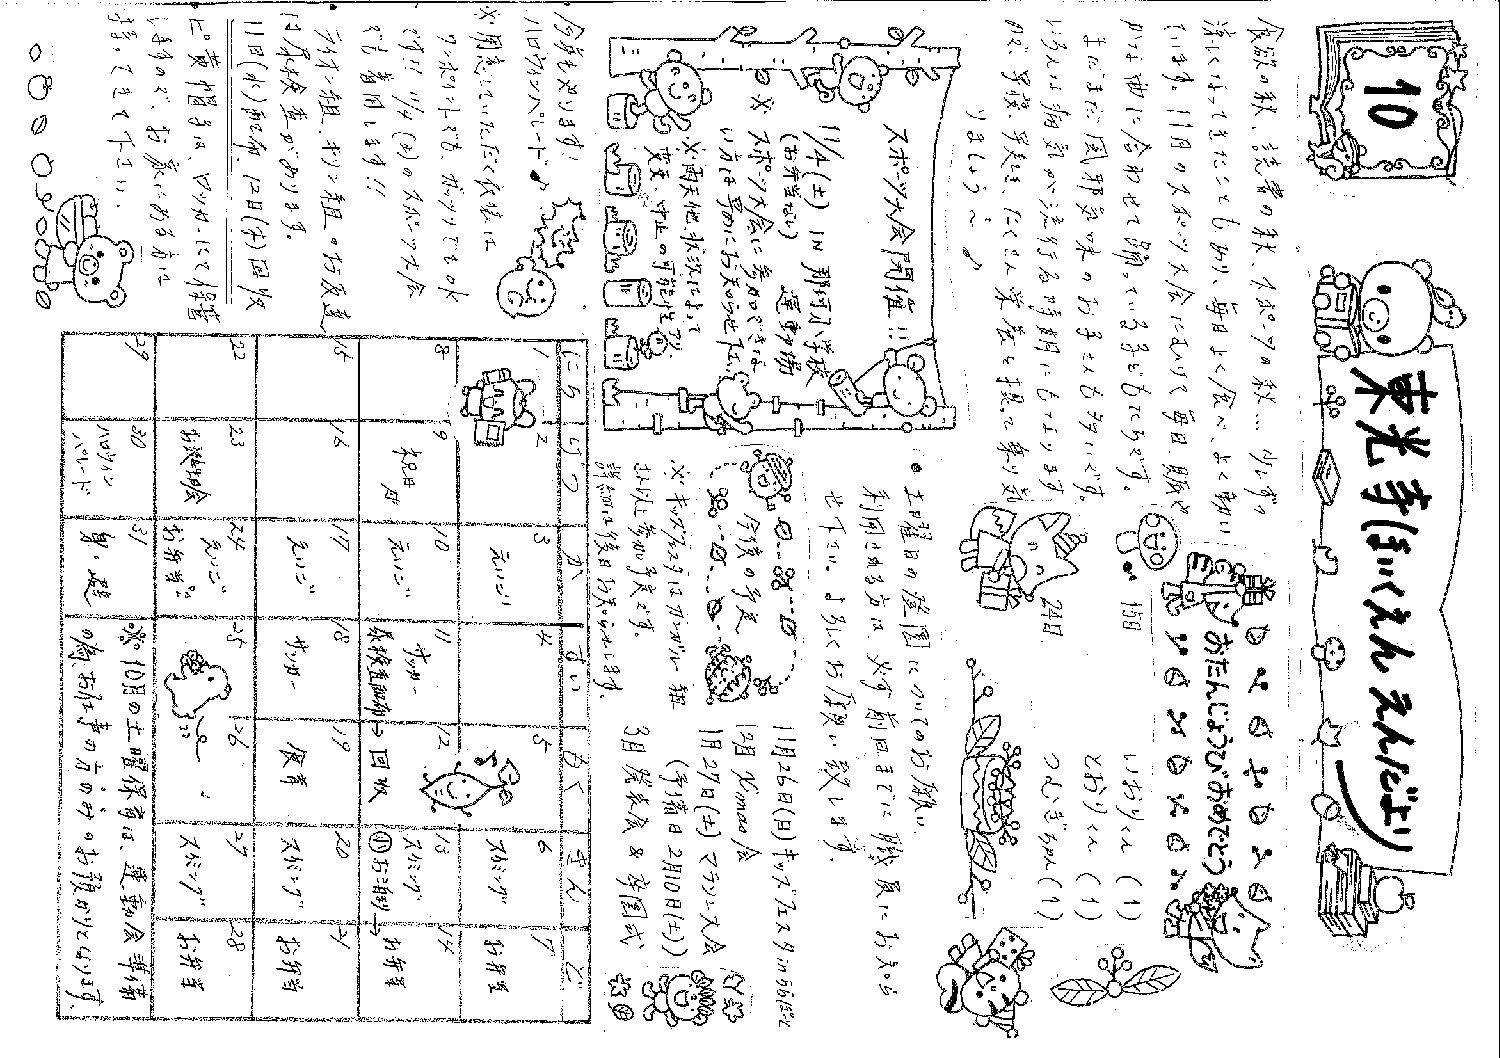 10
東光寺ほいくえん えんだより
食欲の秋、読書の秋、スポーツの秋… 少しずつ
涼しくなってきたこともあり、毎日よく食べ、よく動い
ています。11月のスポーツ大会にむけて毎日、賑や
かな曲に合わせて踊っている子どもたちです。
まだまだ風邪気味のお子さんも多いです。
いろんな病気が流行る時期にもなります
ので、早寝、早起き、たくさん栄養を摂って乗り気
りましょう〜♪
おたんじょうびおめでとう
19日 いおりくん (1)
とおりくん (1)
24日 つむぎちゃん (1)
スポーツ大会開催!!
11/4 (土) IN 那珂小学校
(お弁当なし) 運動場
※ スポーツ大会に参加できな
い方は早めにお知らせ下さい
※雨天他、状況によって
変更、中止の可能性アリ
● 土曜日の登園についてのお願い
利用される方は必ず前日までに職員にお知ら
せ下さい。よろしくお願い致します。
今後の予定
11月26日(日) キッズフェスタ inららぽーと
12月 Xmas会
1月27日(土) マラソン大会
(予備日 2月10日(土))
3月 発表会 & 卒園式
※ キッズフェスタはカンガルー組
さん以上参加予定です。
詳細は後日お知らせします。
今年もやります!
ハロウィンパレード♪
※用意していただく衣装は
ワンポイントでも、ガッツリでもOK
です!! 11/4 (土)のスポーツ大会
でも着用します!!
ライオン組、キリン組のお友達
は尿検査があります。
11日(水)配布、12日(木)回収
ピ。黄帽子は、ロッカーにて保管
しますので、お家にある方は
持ってきて下さい。
にち げつ か すい もく きん ど
1 2 3 えいご 4 5 6 スイミング 7 お弁当
8 9 祝日 10 えいご 11 サッカー 尿検査配布→ 12 回収 13 スイミング お泊り→ 14 お弁当
15 16 17 えいご 18 サッカー 19 体育 20 スイミング 21 お弁当
22 23 お誕生会 24 えいご お弁当 25 26 27 スイミング 28 お弁当
29 30 ハロウィンパレード 31 身・避
※10月の土曜保育は、運動会準備
の為お仕事の方のみのお預かりとなります。